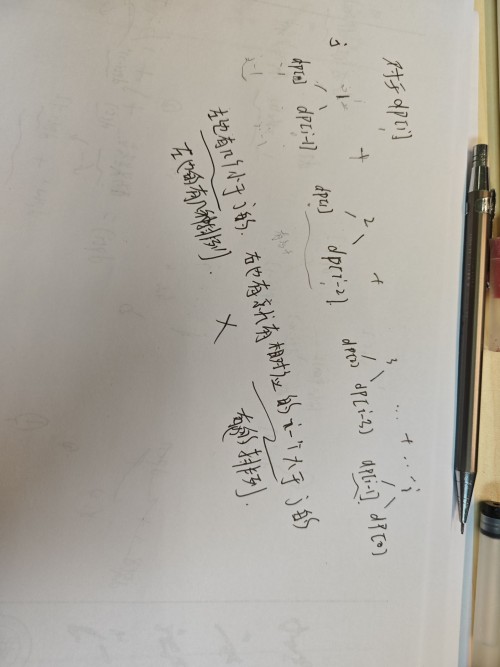 对于dp[i]
j
1 + 2 + 3 ... + ... i
dp[0] dp[i-1] dp[1] dp[i-2] dp[2] dp[i-3] dp[i-1] dp[0]
左边有几个小于j的. 右边有就有相对应的i-j个大于j的
左边的有几种排列. × 右边的排列.